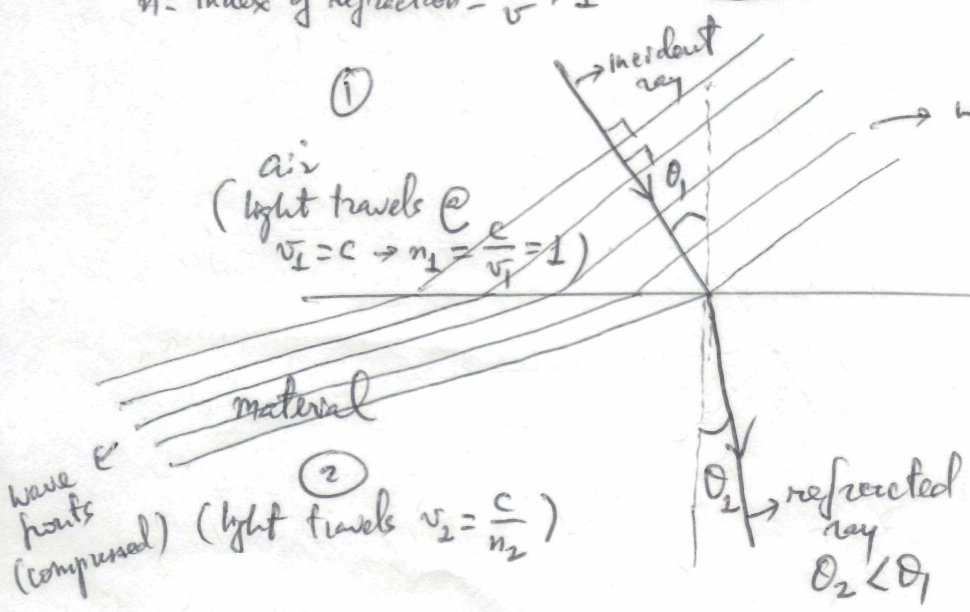 n= index of refraction =
incident
ray
①
air
(light travels @
v₁ = c → n₁ = c/v₁ = 1)
θ₁
material
②
wave
fronts
(compressed)
(light travels v₂ = c/n₂)
θ₂
refracted
ray
θ₂ < θ₁